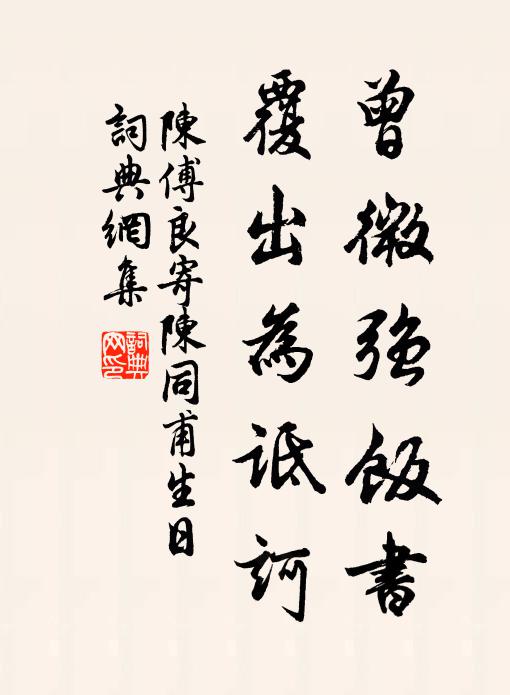 曾微強飯書
覆出為詆訶
陳傅良寄陳同甫生日
詞典網集
詞典网印